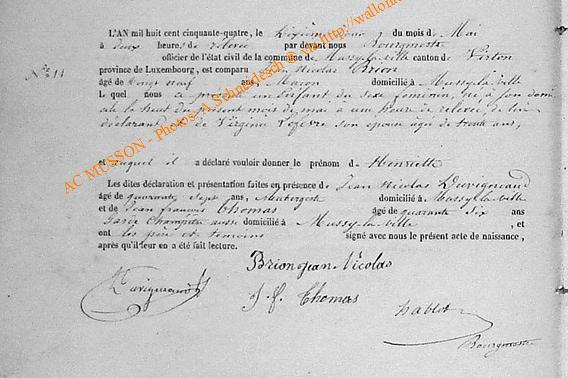 L'AN mil huit cent cinquante-quatre, le dixième jour du mois de Mai
à deux heures de relevée par devant nous Bourgmestre
officier de l'état civil de la commune de Mussy-la-ville canton de Virton
N° 11 province de Luxembourg, est comparu Jean Nicolas Brion
âgé de vingt neuf ans, Maçon domicilié à Mussy-la-ville
Le quel nous a présenté un enfant du sexe féminin, né à son domi
cile le huit du présent mois de mai à une heure de relevée de lui
déclarant et de Virginie Lefèvre son épouse âgée de trente ans,
et auquel il a déclaré vouloir donner le prénom d'Henriette
Les dites déclaration et présentation faites en présence de Jean Nicolas Duvigneaud
âgé de quarante sept ans, domicilié à Mussy-la-ville
et de Jean françois Thomas âgé de quarante six ans
Garde Champêtre aussi domicilié à Mussy-la-ville , et
ont les père et témoins signé avec nous le présent acte de naissance,
après qu'il leur en a été fait lecture.
Brion jean Nicolas
Duvigneaud
J. f. Thomas
hablot
Bourgmestre
AC MUSSON - Photos A Schneidesch @ Via http://wallon